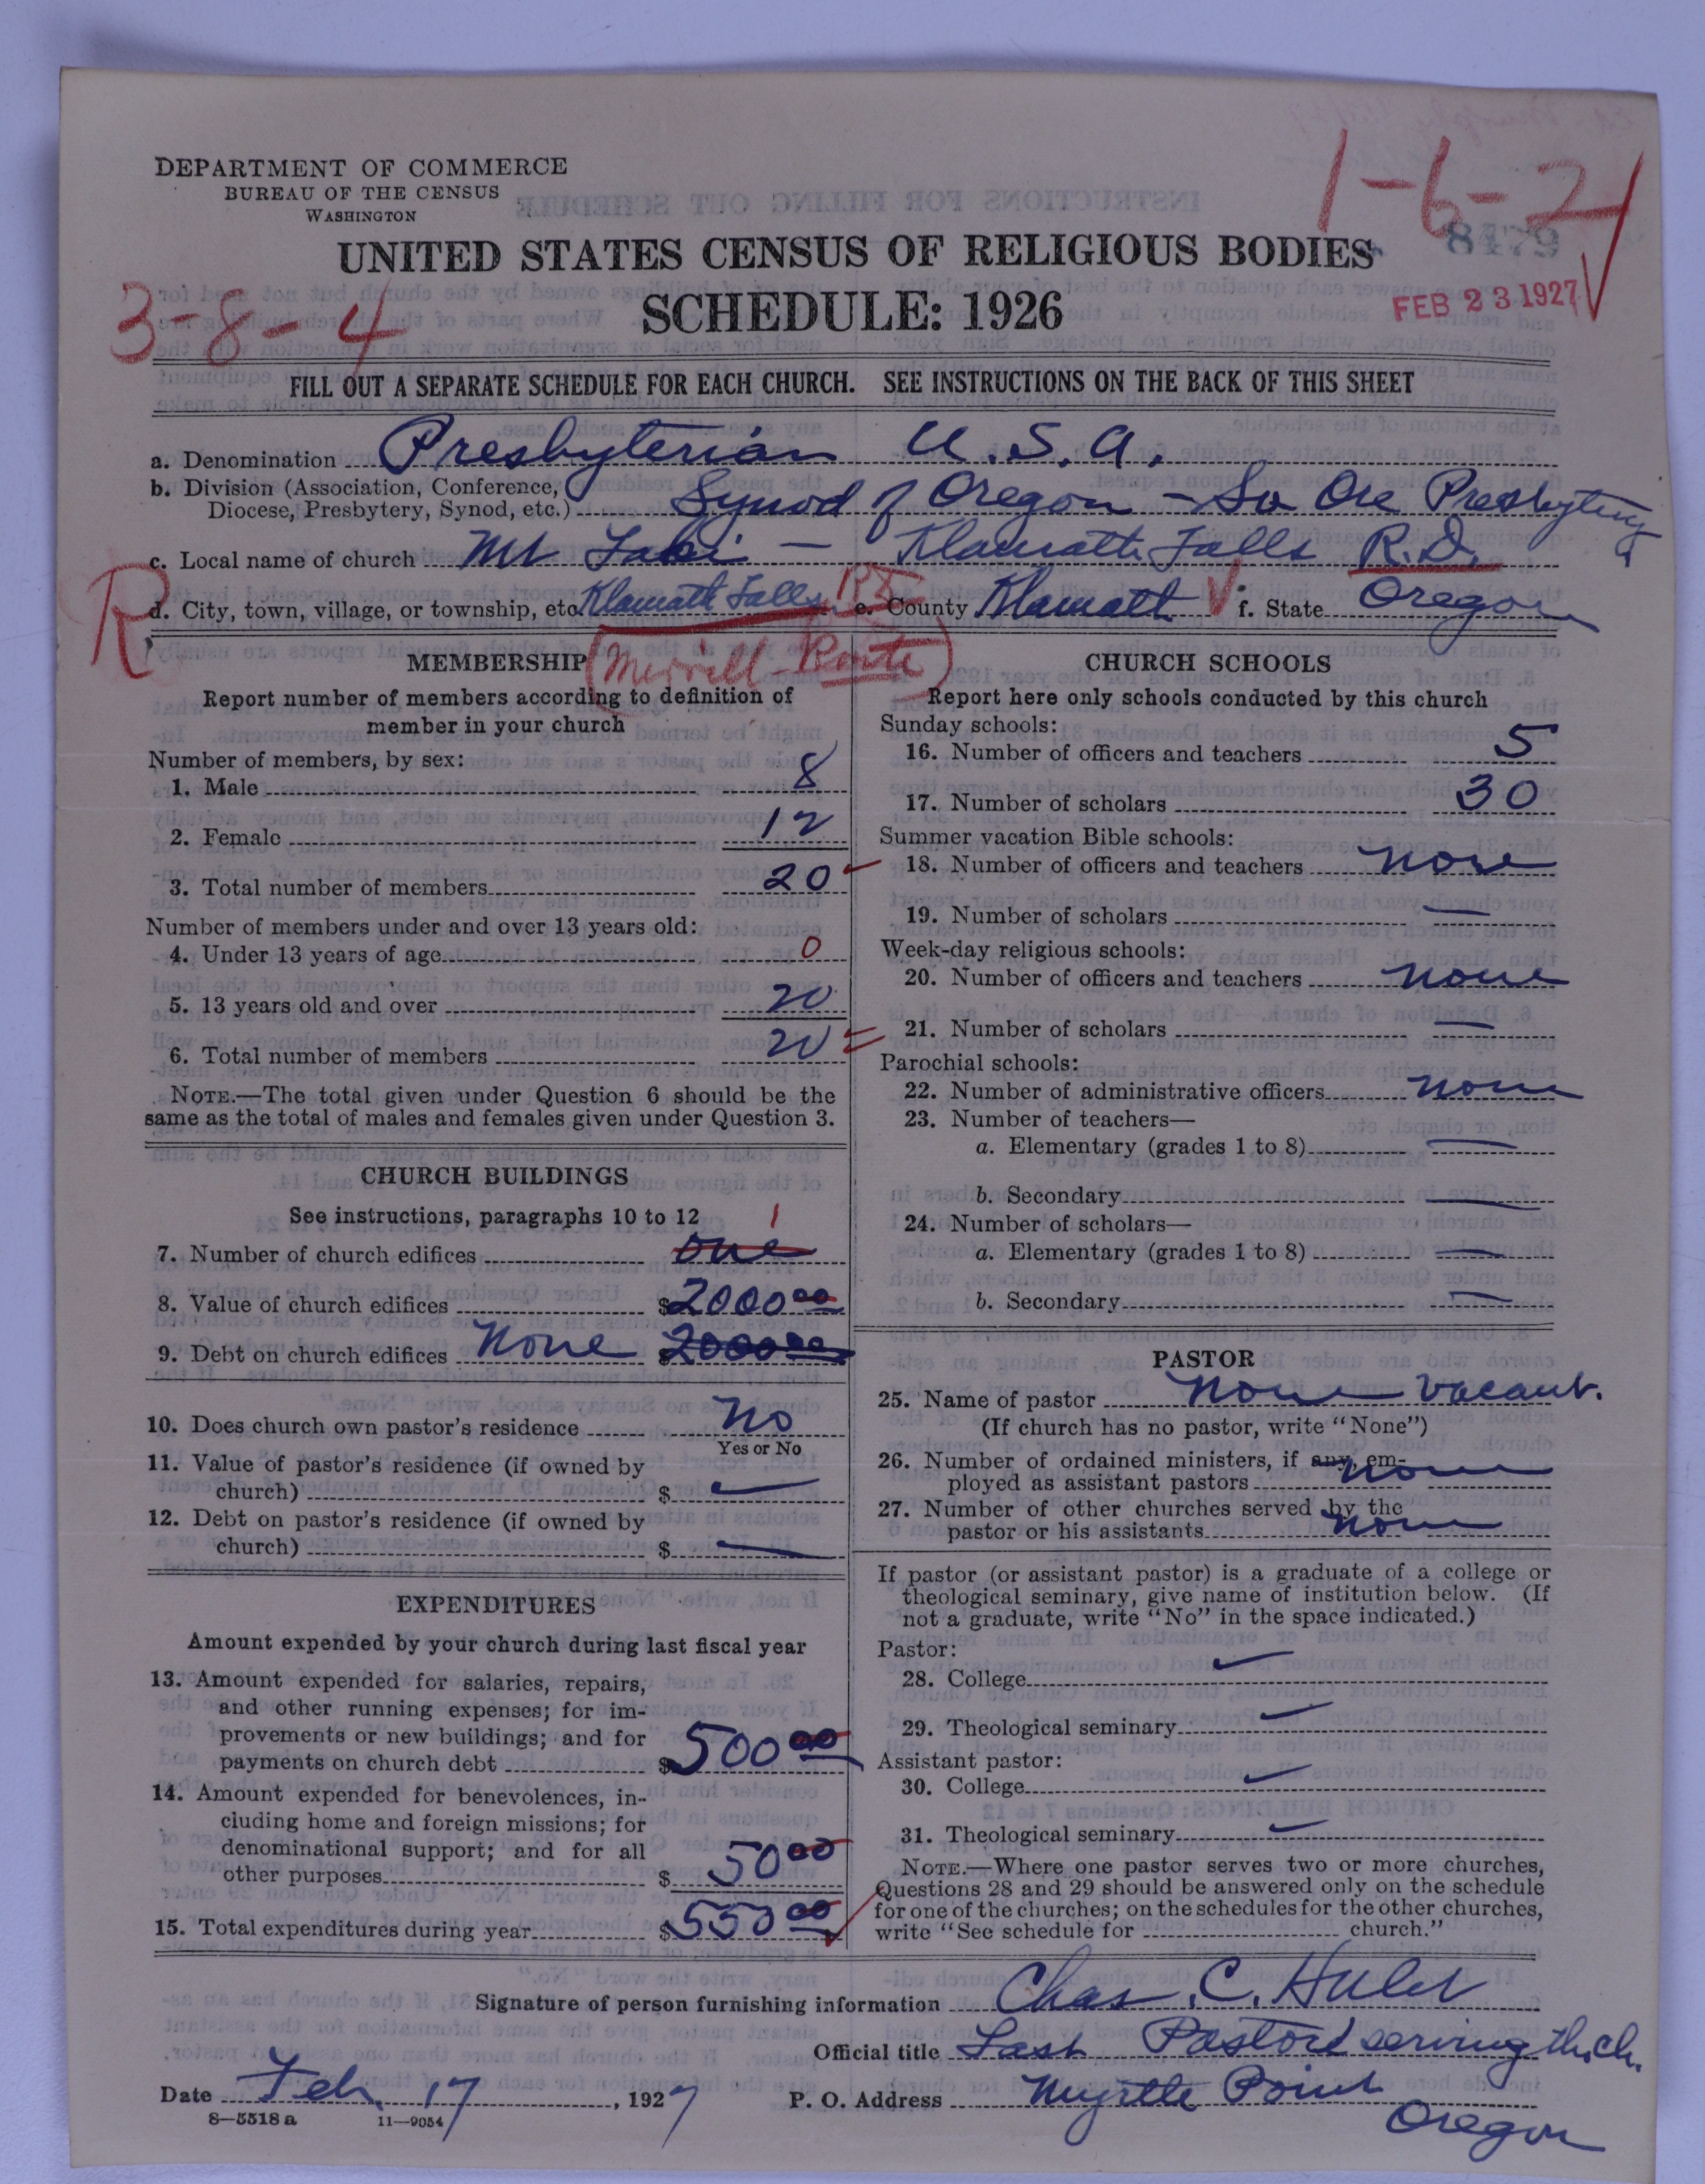 DEPARTMENT OF COMMERCE
BUREAU OF THE CENSUS
WASHINGTON
1-6-2
8479
UNITED STATES CENSUS OF RELIGIOUS BODIES
3-8-4
SCHEDULE: 1926
FEB 23 1927
FILL OUT A SEPARATE SCHEDULE FOR EACH CHURCH. SEE INSTRUCTIONS ON THE BACK OF THIS SHEET
a. Denomination Presbyterian U.S.A.
b. Division (Association, Conference,
Diocese, Presbytery, Synod, etc.) Synod of Oregon - So Ore Presbytery
c. Local name of church Mt Laki - Klamath Falls R.D.
R
d. City, town, village, or township, etc. Klamath Falls e. County Klamath f. State Oregon
(Merrill Route)
MEMBERSHIP
Report number of members according to definition of
member in your church
Number of members, by sex:
1. Male 8
2. Female 12
3. Total number of members 20
Number of members under and over 13 years old:
4. Under 13 years of age 0
5. 13 years old and over 20
6. Total number of members 20
NOTE.—The total given under Question 6 should be the
same as the total of males and females given under Question 3.
CHURCH BUILDINGS
See instructions, paragraphs 10 to 12 1
7. Number of church edifices one
8. Value of church edifices $2000 00
9. Debt on church edifices None $2000 00
10. Does church own pastor's residence No
Yes or No
11. Value of pastor's residence (if owned by
church) $ —
12. Debt on pastor's residence (if owned by
church) $ —
EXPENDITURES
Amount expended by your church during last fiscal year
13. Amount expended for salaries, repairs,
and other running expenses; for im-
provements or new buildings; and for
payments on church debt $500 00
14. Amount expended for benevolences, in-
cluding home and foreign missions; for
denominational support; and for all
other purposes $ 50 00
15. Total expenditures during year $550 00
CHURCH SCHOOLS
Report here only schools conducted by this church
Sunday schools:
16. Number of officers and teachers 5
17. Number of scholars 30
Summer vacation Bible schools:
18. Number of officers and teachers none
19. Number of scholars —
Week-day religious schools:
20. Number of officers and teachers none
21. Number of scholars —
Parochial schools:
22. Number of administrative officers none
23. Number of teachers—
a. Elementary (grades 1 to 8) —
b. Secondary —
24. Number of scholars—
a. Elementary (grades 1 to 8) —
b. Secondary —
PASTOR
25. Name of pastor None Vacant.
(If church has no pastor, write "None")
26. Number of ordained ministers, if any, em-
ployed as assistant pastors none
27. Number of other churches served by the
pastor or his assistants none
If pastor (or assistant pastor) is a graduate of a college or
theological seminary, give name of institution below. (If
not a graduate, write "No" in the space indicated.)
Pastor:
28. College
29. Theological seminary
Assistant pastor:
30. College
31. Theological seminary
NOTE.—Where one pastor serves two or more churches,
Questions 28 and 29 should be answered only on the schedule
for one of the churches; on the schedules for the other churches,
write "See schedule for church."
Signature of person furnishing information Chas. C. Hulet
Official title Last Pastor serving th. ch.
Date Feb. 17, 1927 P. O. Address Myrtle Point
Oregon
8—5518 a 11—9054